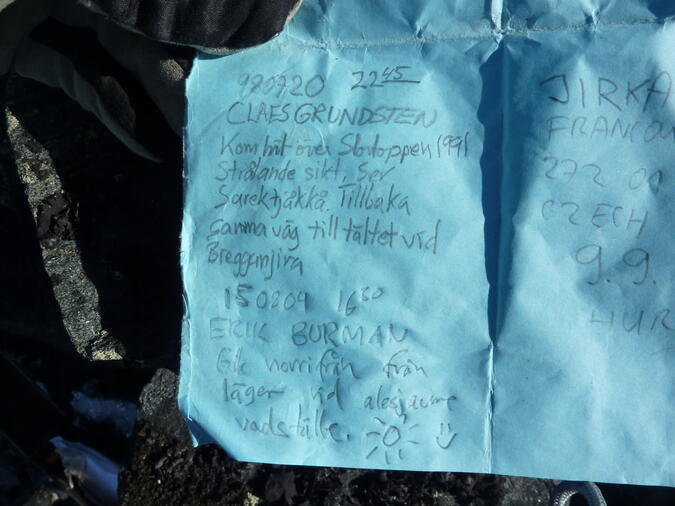 980720 22 45
CLAES GRUNDSTEN
Kom hit över Stortoppen 1991
Strålande sikt, Ser
Sarektjåkkå. Tillbaka
samma väg till tältet vid
150809 16 30
ERIK BURMAN
Gick norrifrån från
läger vid
vadställe.
JIRKA
272 01
CZECH
9.9.
HUR